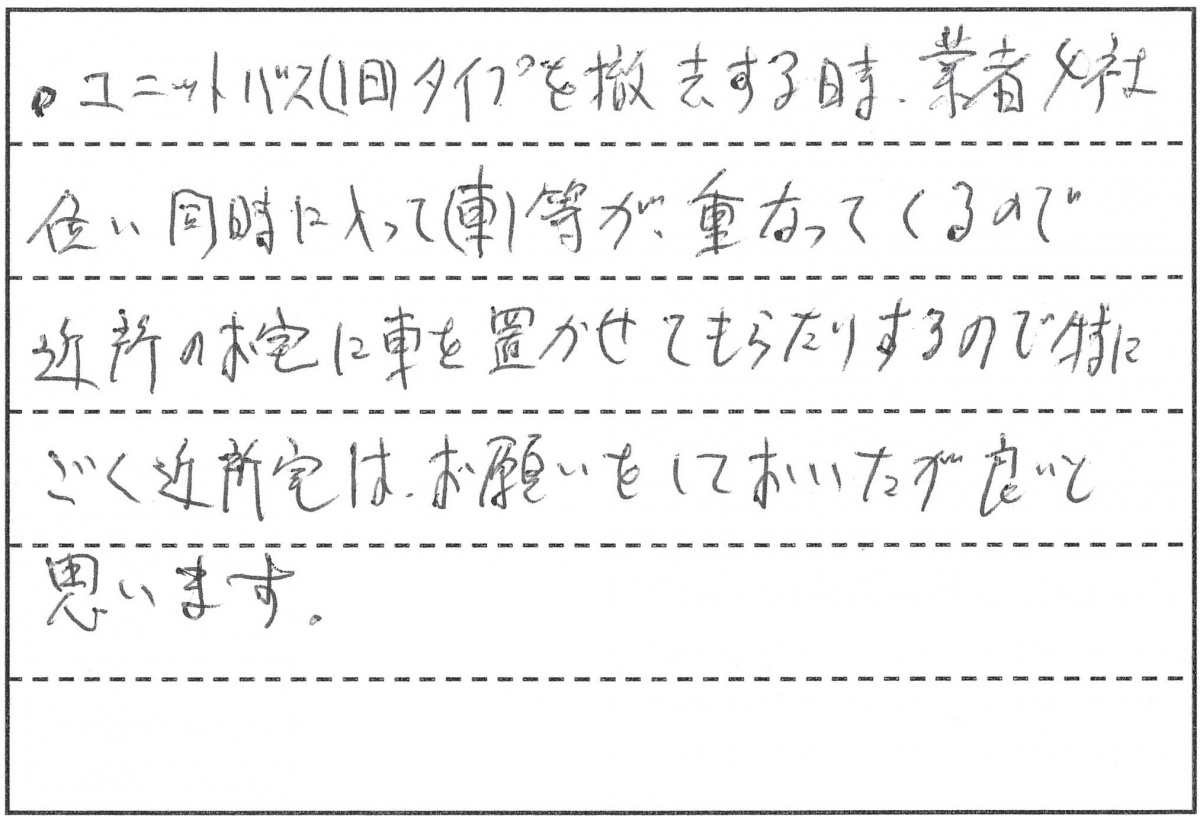 。ユニットバス(旧)タイプを撤去する時、業者4社
位い同時に入って(車)等が、重なってくるので
近所の様宅に車を置かせてもらたりするので特に
ごく近所宅は、お願いをしておいたが良いと
思います。